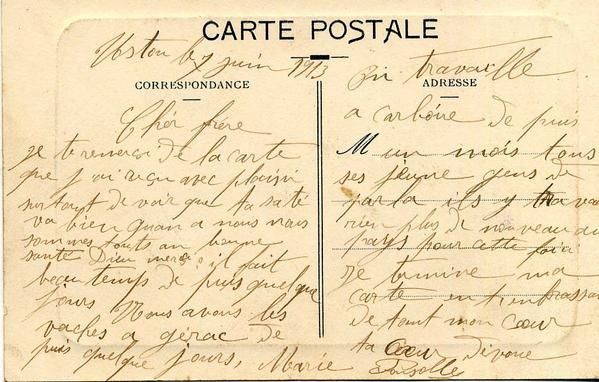 CARTE POSTALE
Uston le 7 juin 1913
CORRESPONDANCE
Chér frére
je te remerçi de la carte
que j'ai reçu avec plaisir
surtout de voir que ta saté
va bien quan a nous nous
sommes touts an bonne
santé Dieu merçi il fait
beau temps de puis quelque
jours Nous avons les
vaches a gérac de
puis quelque jours, Marie
ADRESSE
On travaille
a carboire de puis
M un mois tous
ses jeune gens de
par la ils y trava
rien plus de nouveau au
pays pour cette foici
je termine ma
carte en t'enbrassan
de tout mon cœur
ta Cœur dévoué